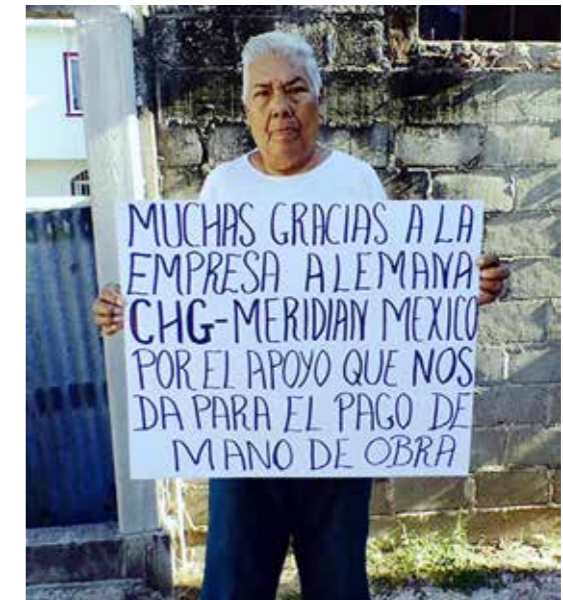 MUCHAS GRACIAS A LA
EMPRESA ALEMANA
CHG-MERIDIAN MEXICO
POR EL APOYO QUE NOS
DA PARA EL PAGO DE
MANO DE OBRA